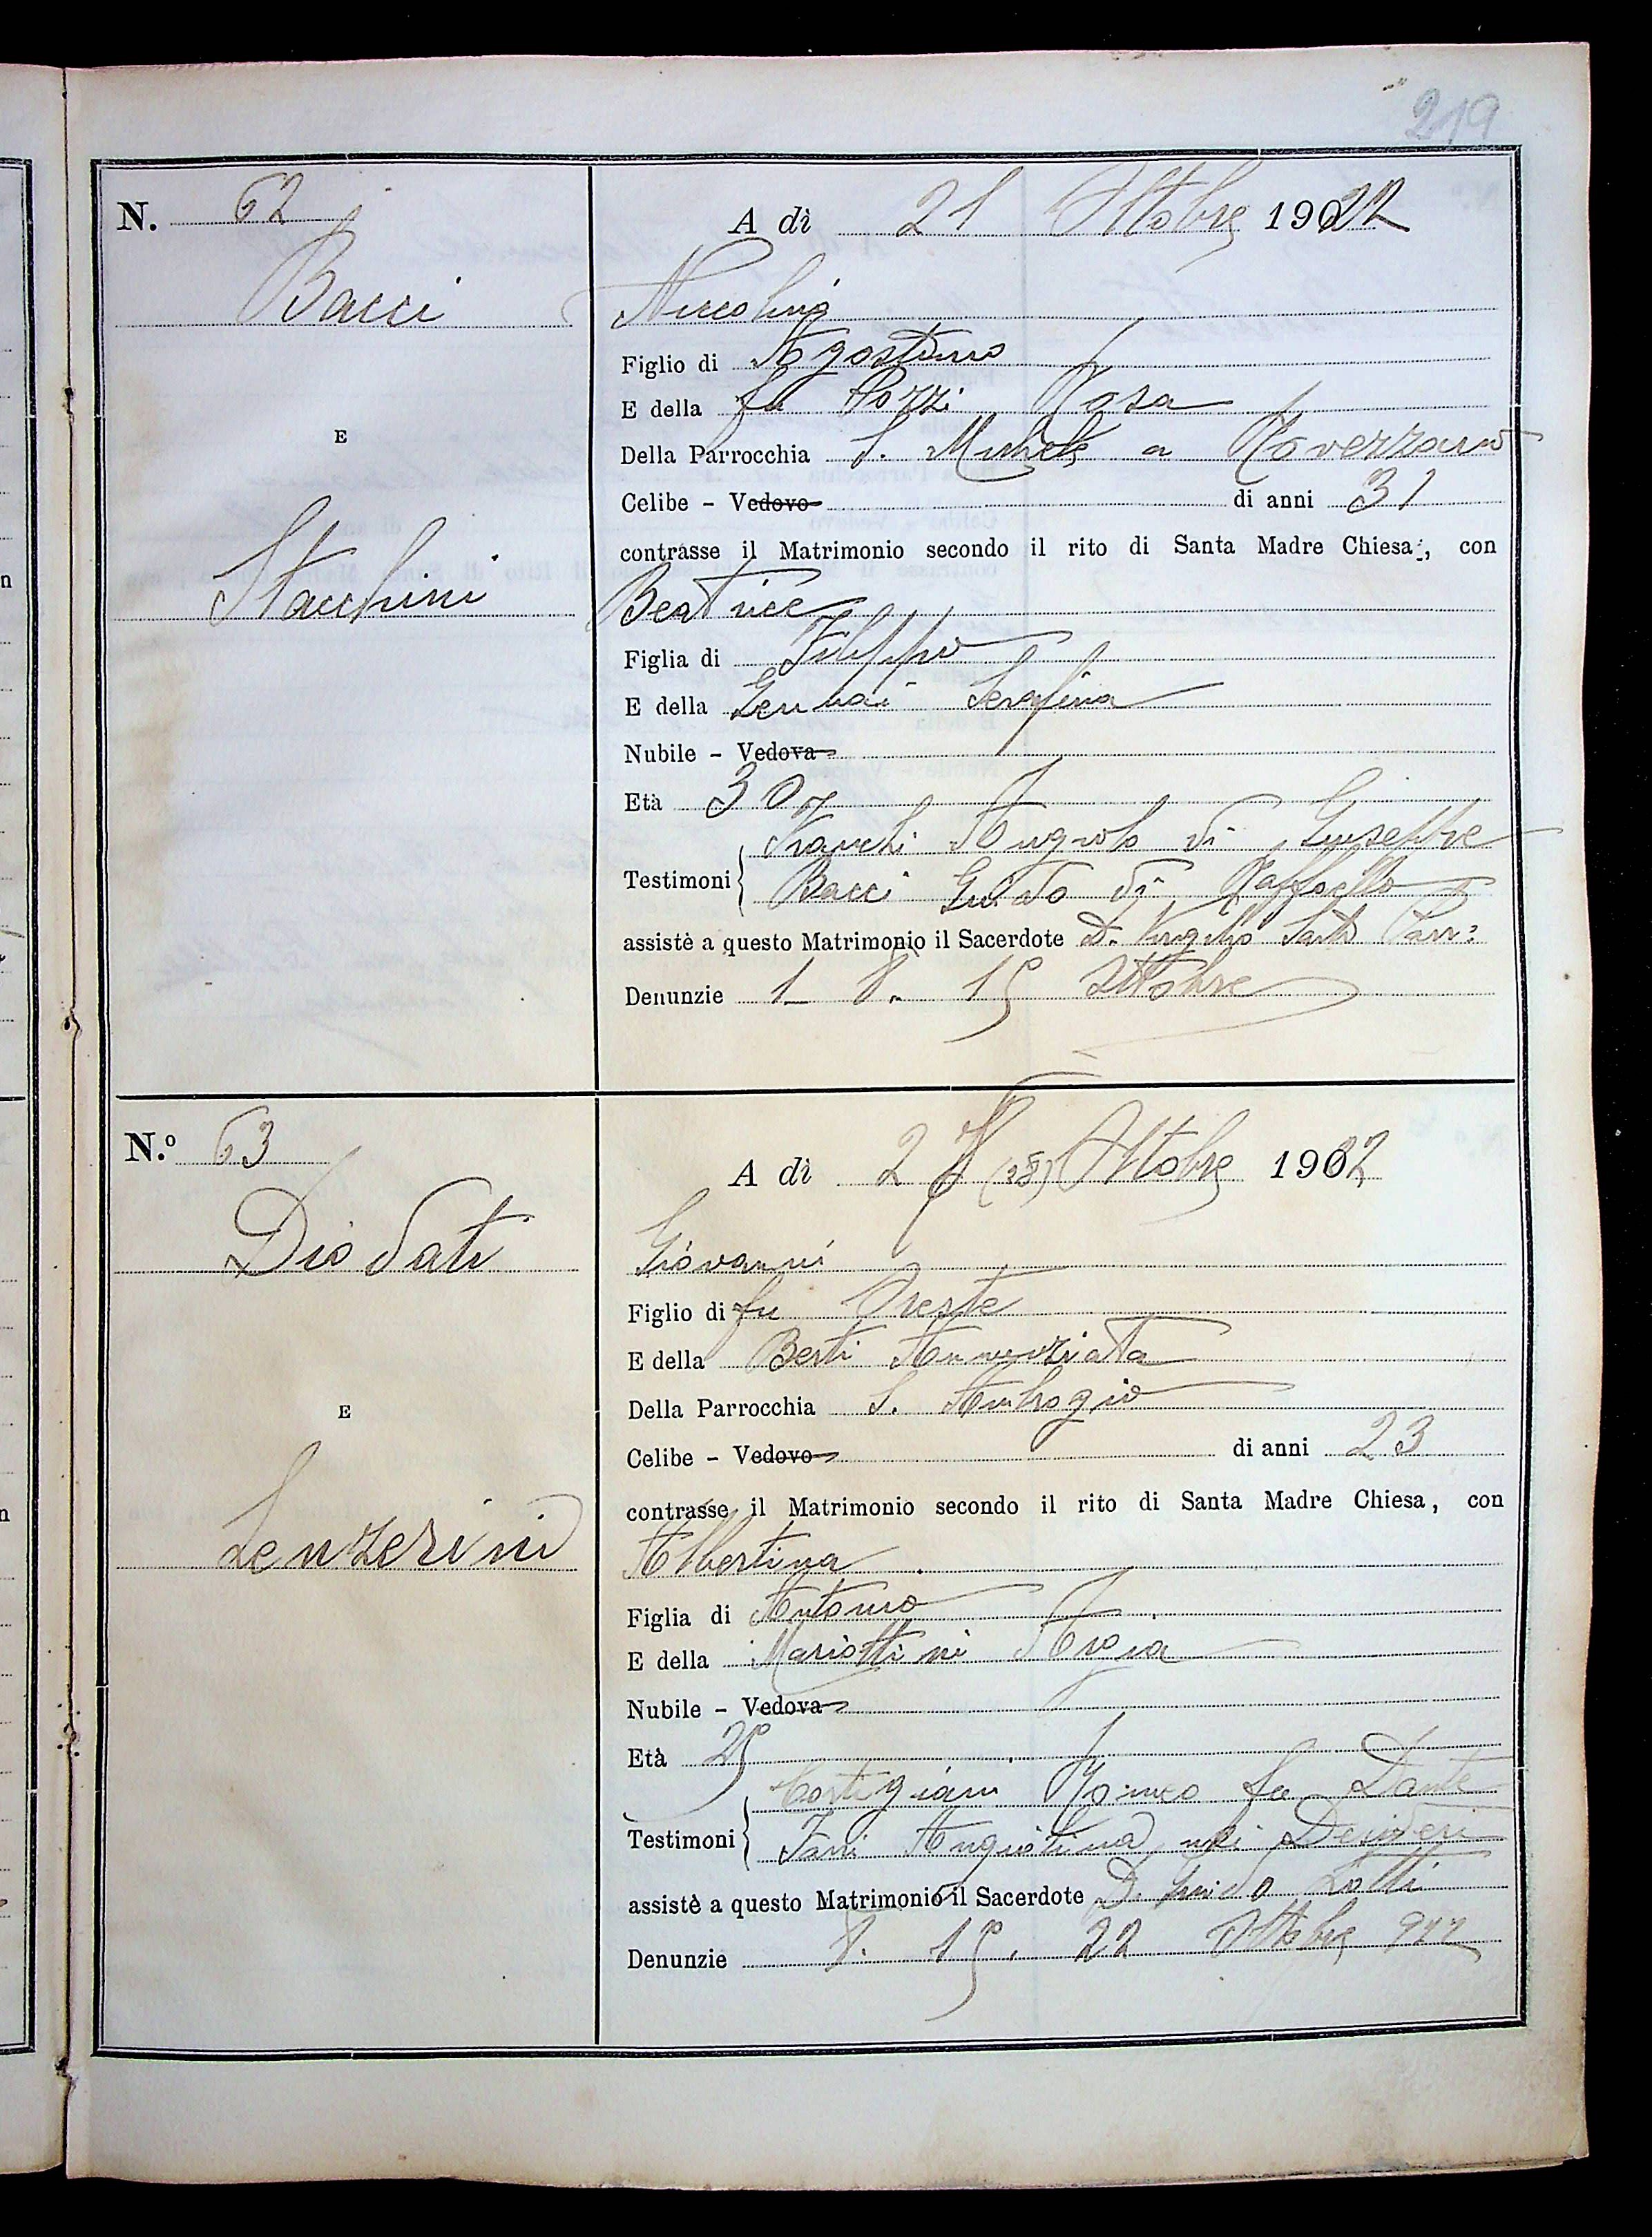 219
N. 62
A dì 21 Ottobre 1922
Bacci
Niccolino
Figlio di Agostino
E della fu Pozzi Rosa
E
Della Parrocchia S. Michele a Rovezzano
Celibe - Vedovo di anni 31
contrasse il Matrimonio secondo il rito di Santa Madre Chiesa, con
Stacchini
Beatrice
Figlia di Filippo
E della Gennai Serafina
Nubile - Vedova
Età 30
Franchi Angiolo di Giuseppe
Testimoni
Bacci Guido di Raffaello
assistè a questo Matrimonio il Sacerdote D. Virgilio Parr:
Denunzie 1_ 8. 15 Ottobre
N.º 63
A dì 28 (28) Ottobre 1922
Diodati
Giovanni
Figlio di fu Oreste
E della Berti Annunziata
E
Della Parrocchia S. Ambrogio
Celibe - Vedovo di anni 23
contrasse il Matrimonio secondo il rito di Santa Madre Chiesa, con
Lenzerini
Albertina
Figlia di Antonio
E della Mariottini Argia
Nubile - Vedova
Età 25
Cortigiani Romeo fu Dante
Testimoni
Angiolina nei Desideri
assistè a questo Matrimonio il Sacerdote D. Guido Lotti
Denunzie 8. 15. 22 Ottobre 922